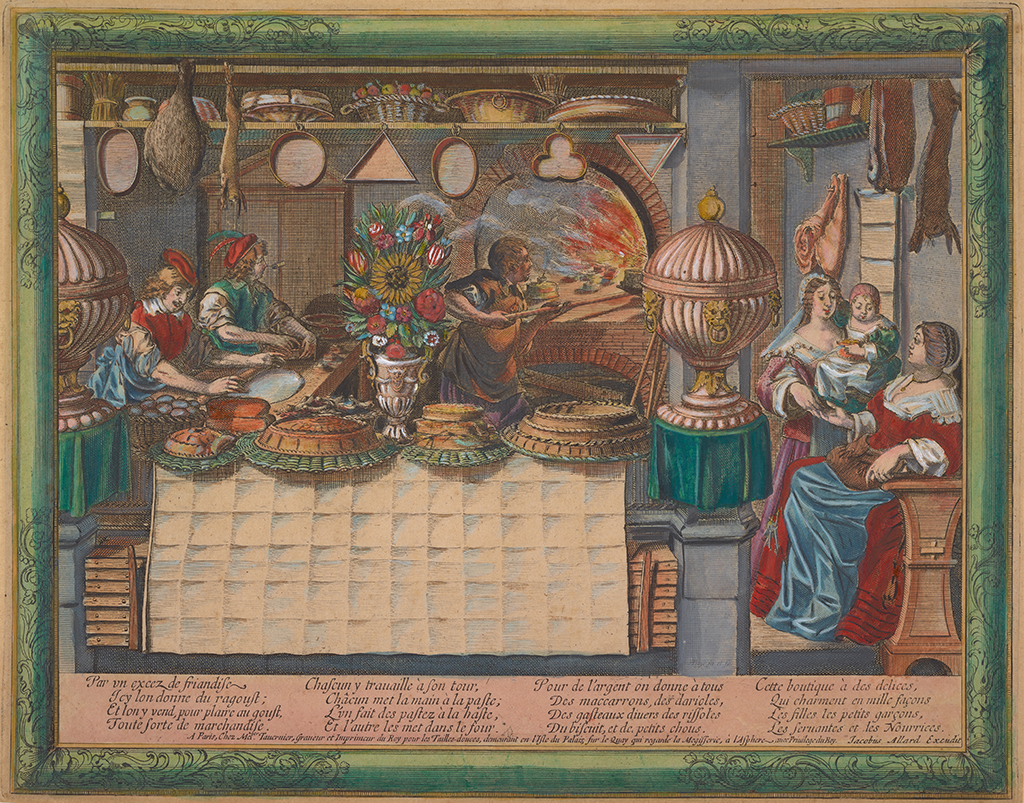 Par vn excez de friandise
Icy lon donne du ragoust;
Et lon y vend, pour plaire au goust,
Toute sorte de marchandise.
Chascun y trauaille à son tour,
Chacun met la main à la paste;
L'vn fait des pastez à la haste,
Et l'autre les met dans le four.
Pour de l'argent on donne à tous
Des maccarrons, des darioles,
Des gasteaux diuers des rissoles
Du biscuit, et de petits chous.
Cette boutique à des delices,
Qui charment en mille façons
Les filles les petits garçons,
Les seruantes et les Nourrices.
A Paris, Chez Mel. Tauernier, Graueur et Imprimeur du Roy pour les Tailles-douces, demeurant en l'Isle du Palais, sur le Quay qui regarde la Megisserie, à la Sphere auec Priuilege du Roy. Jacobus Allard Excudit